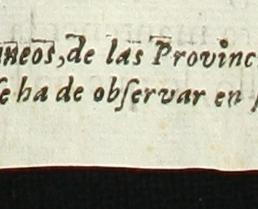 neos, de las Provinc
se ha de obſervar en